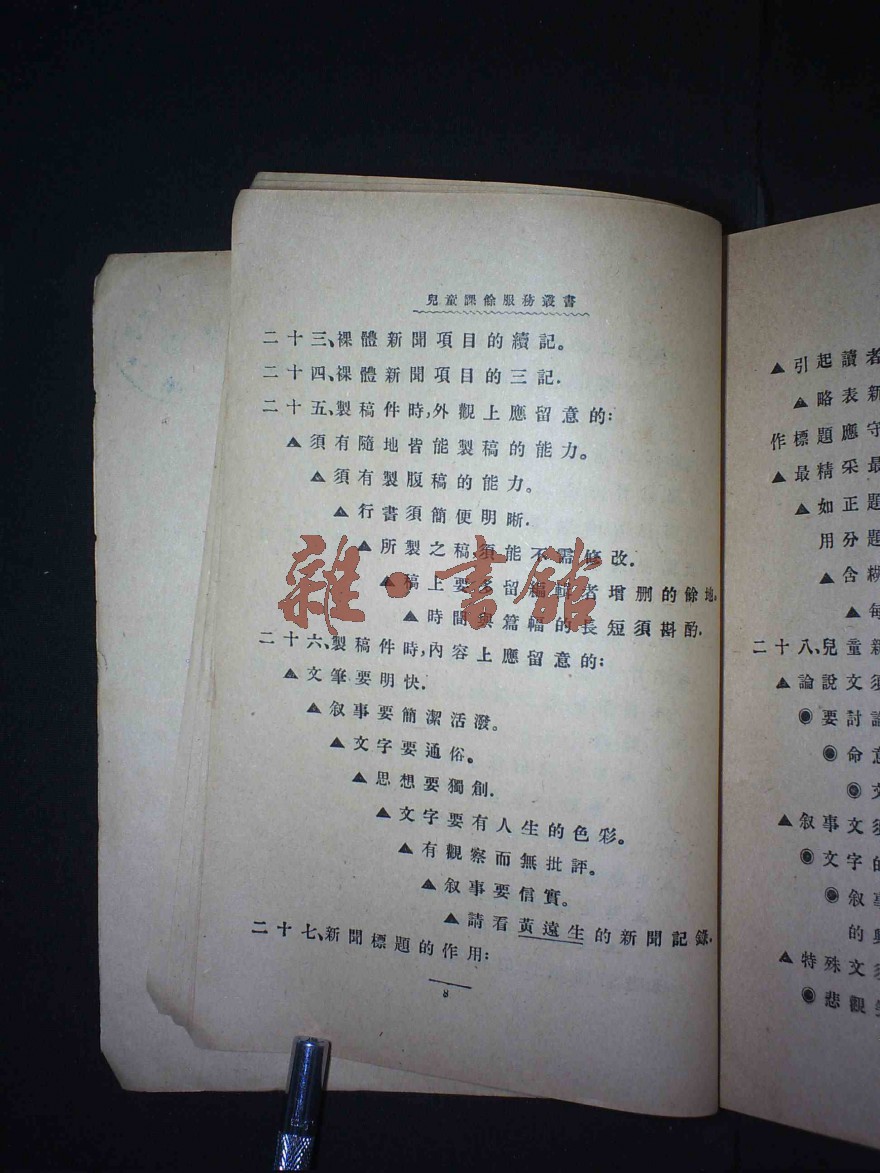 兒童課餘服務叢書
二十三、裸體新聞項目的續記。
二十四、裸體新聞項目的三記.
二十五、製稿件時,外觀上應留意的:
▲須有隨地皆能製稿的能力。
▲須有製腹稿的能力。
▲行書須簡便明晰.
▲所製之稿,須能不需修改.
▲稿上要多留編輯者增删的餘地.
▲時間與篇幅的長短須斟酌.
二十六、製稿件時,內容上應留意的:
▲文筆要明快.
▲叙事要簡潔活潑。
▲文字要通俗。
▲思想要獨創.
▲文字要有人生的色彩。
▲有觀察而無批評。
▲叙事要信實。
▲請看黃遠生的新聞記錄.
二十七、新聞標題的作用:
8
雜·書館
▲引起讀者
▲略表新
作標題應守
▲最精采最
▲如正題
用分題
▲含糊
▲每
二十八、兒童新
▲論說文須
◉要討論
◉命意
◉文
▲叙事文須
◉文字的
◉叙事
的
▲特殊文須
◉悲觀